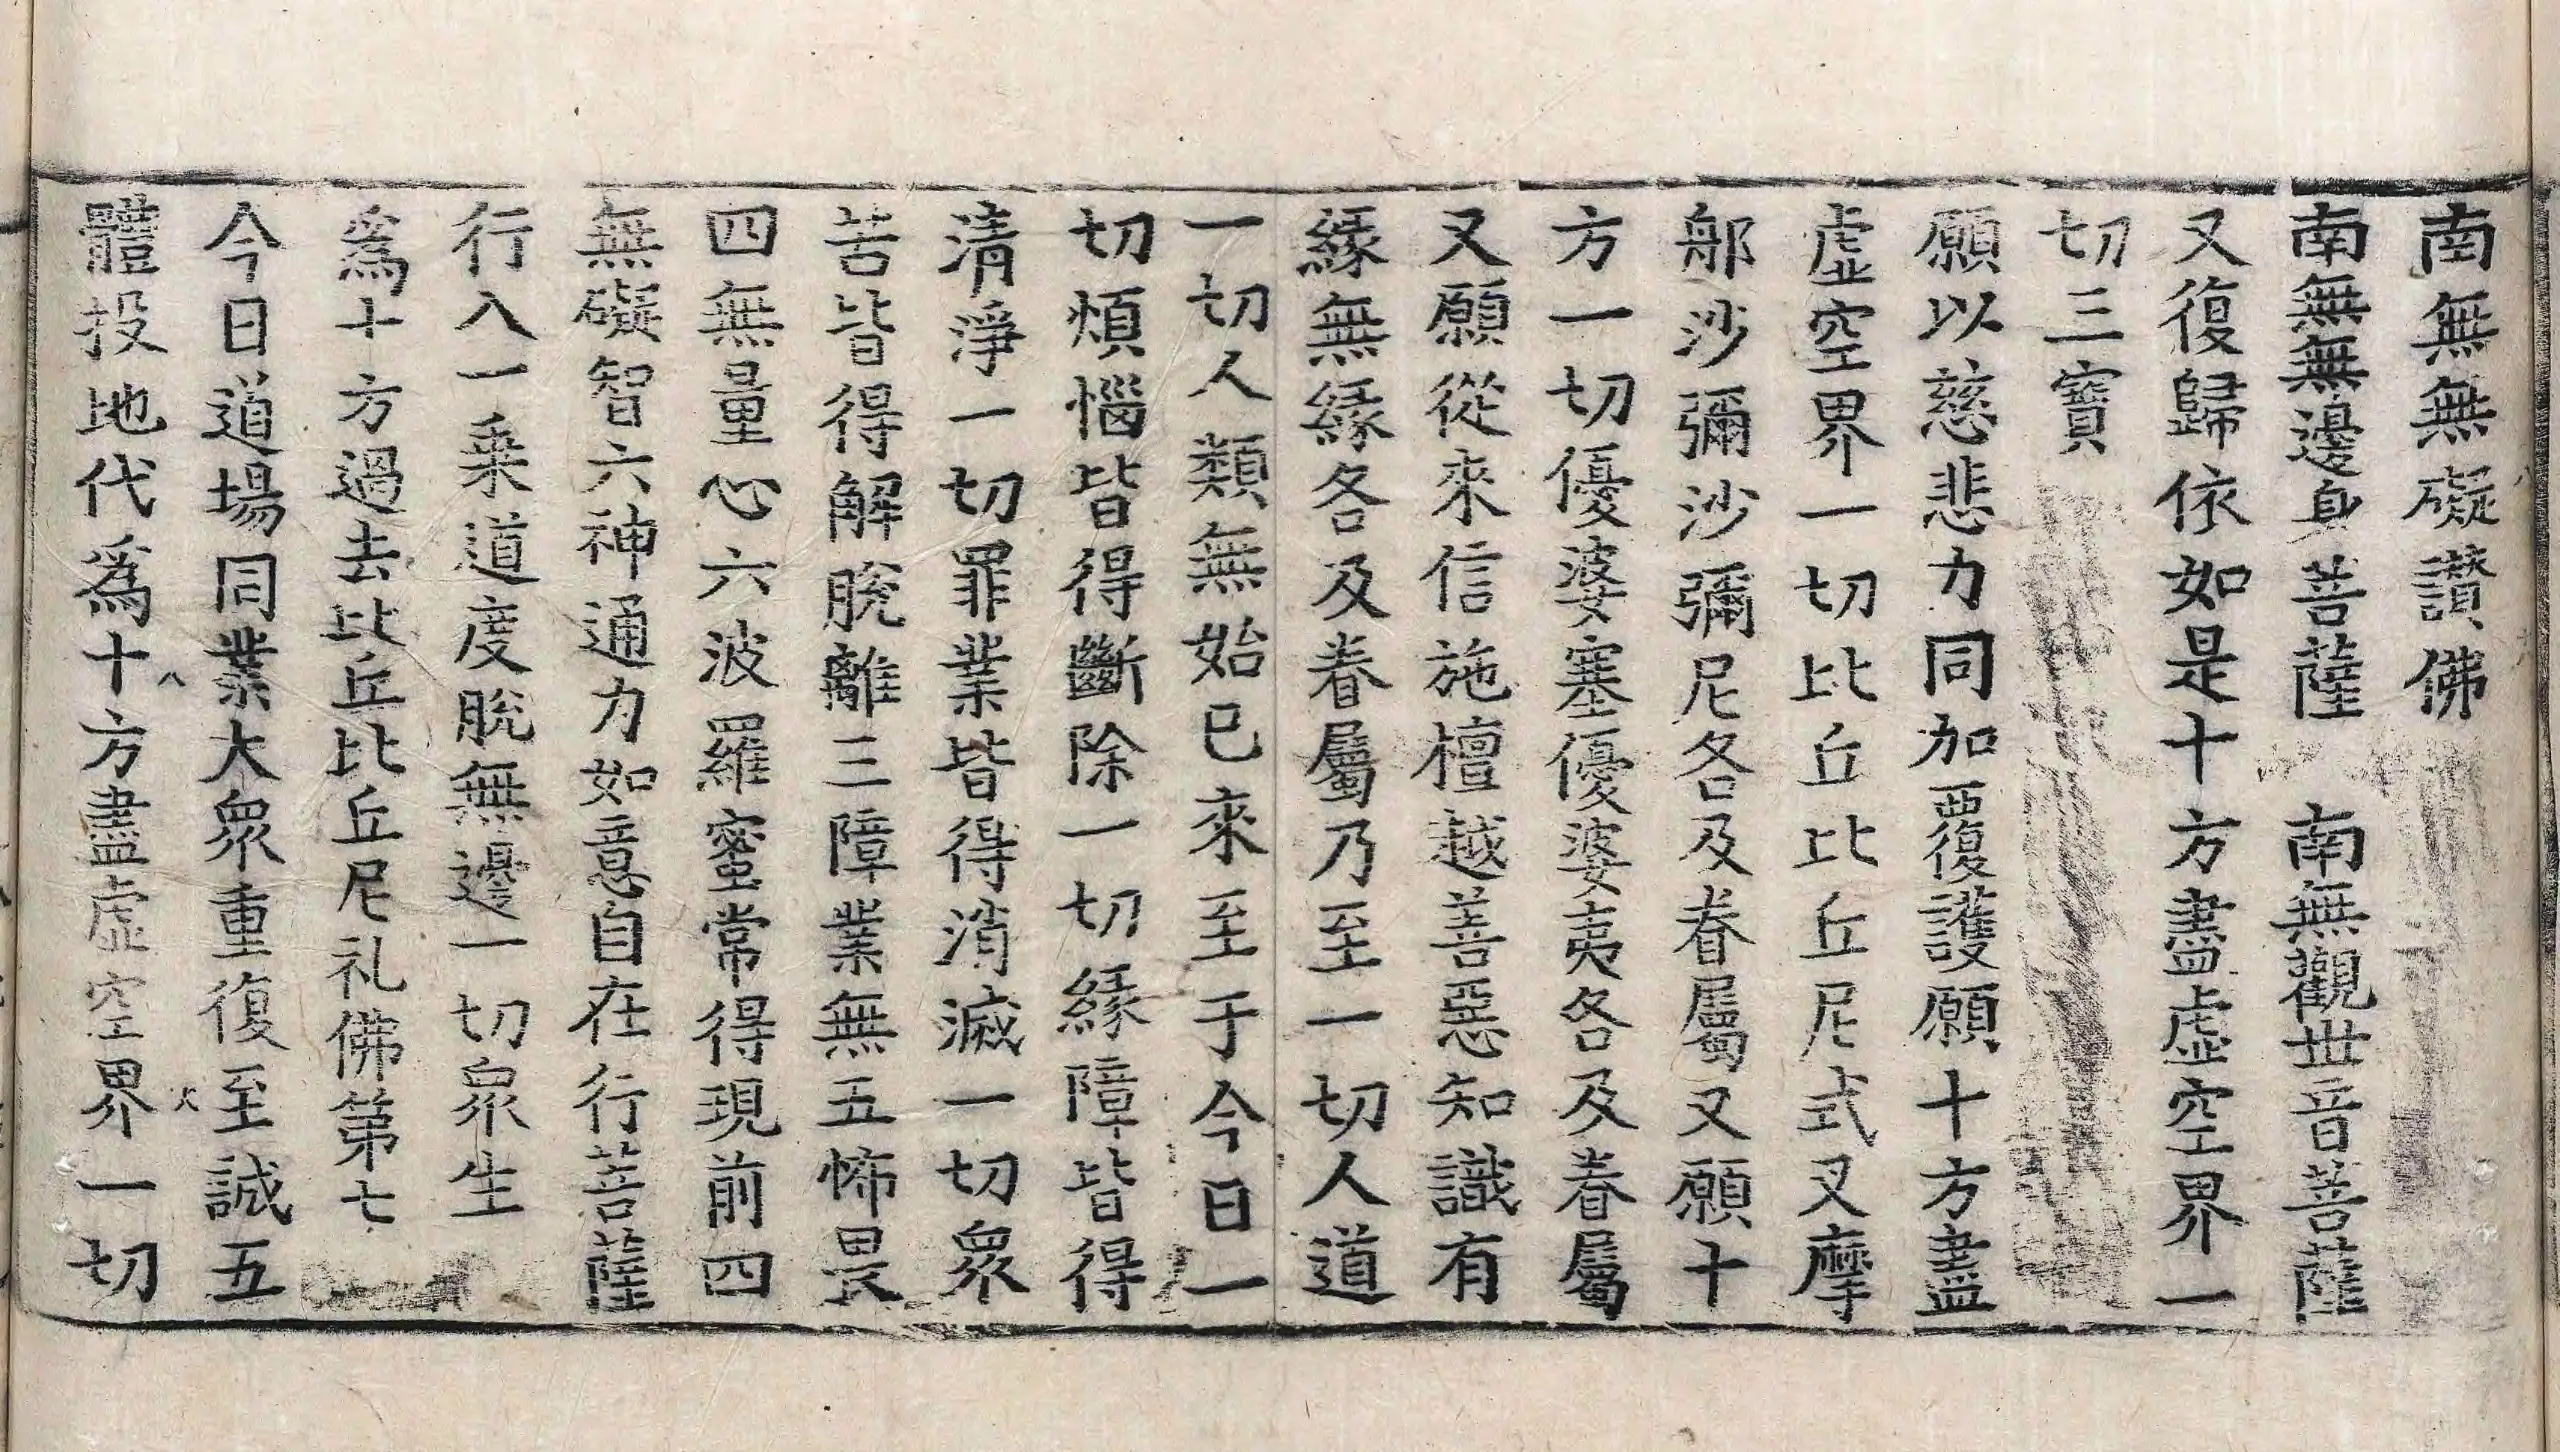 南無無礙讃佛
南無無邊身菩薩　南無觀世音菩薩
又復歸依如是十方盡虛空界一
切三寶
願以慈悲力同加覆護願十方盡
虛空界一切比丘比丘尼式叉摩
郍沙彌沙彌尼各及眷屬又願十
方一切優婆塞優婆夷各及眷屬
又願從來信施檀越善惡知識有
緣無緣各及眷屬乃至一切人道
一切人類無始已來至于今日一
切煩惱皆得斷除一切緣障皆得
清淨一切罪業皆得消滅一切衆
苦皆得解脫離三障業無五怖畏
四無量心六波羅蜜常得現前四
無礙智六神通力如意自在行菩薩
行入一乗道度脫無邊一切衆生
爲十方過去比丘比丘尼礼佛第七
今日道場同業大衆重復至誠五
體投地代爲十方盡虛空界一切